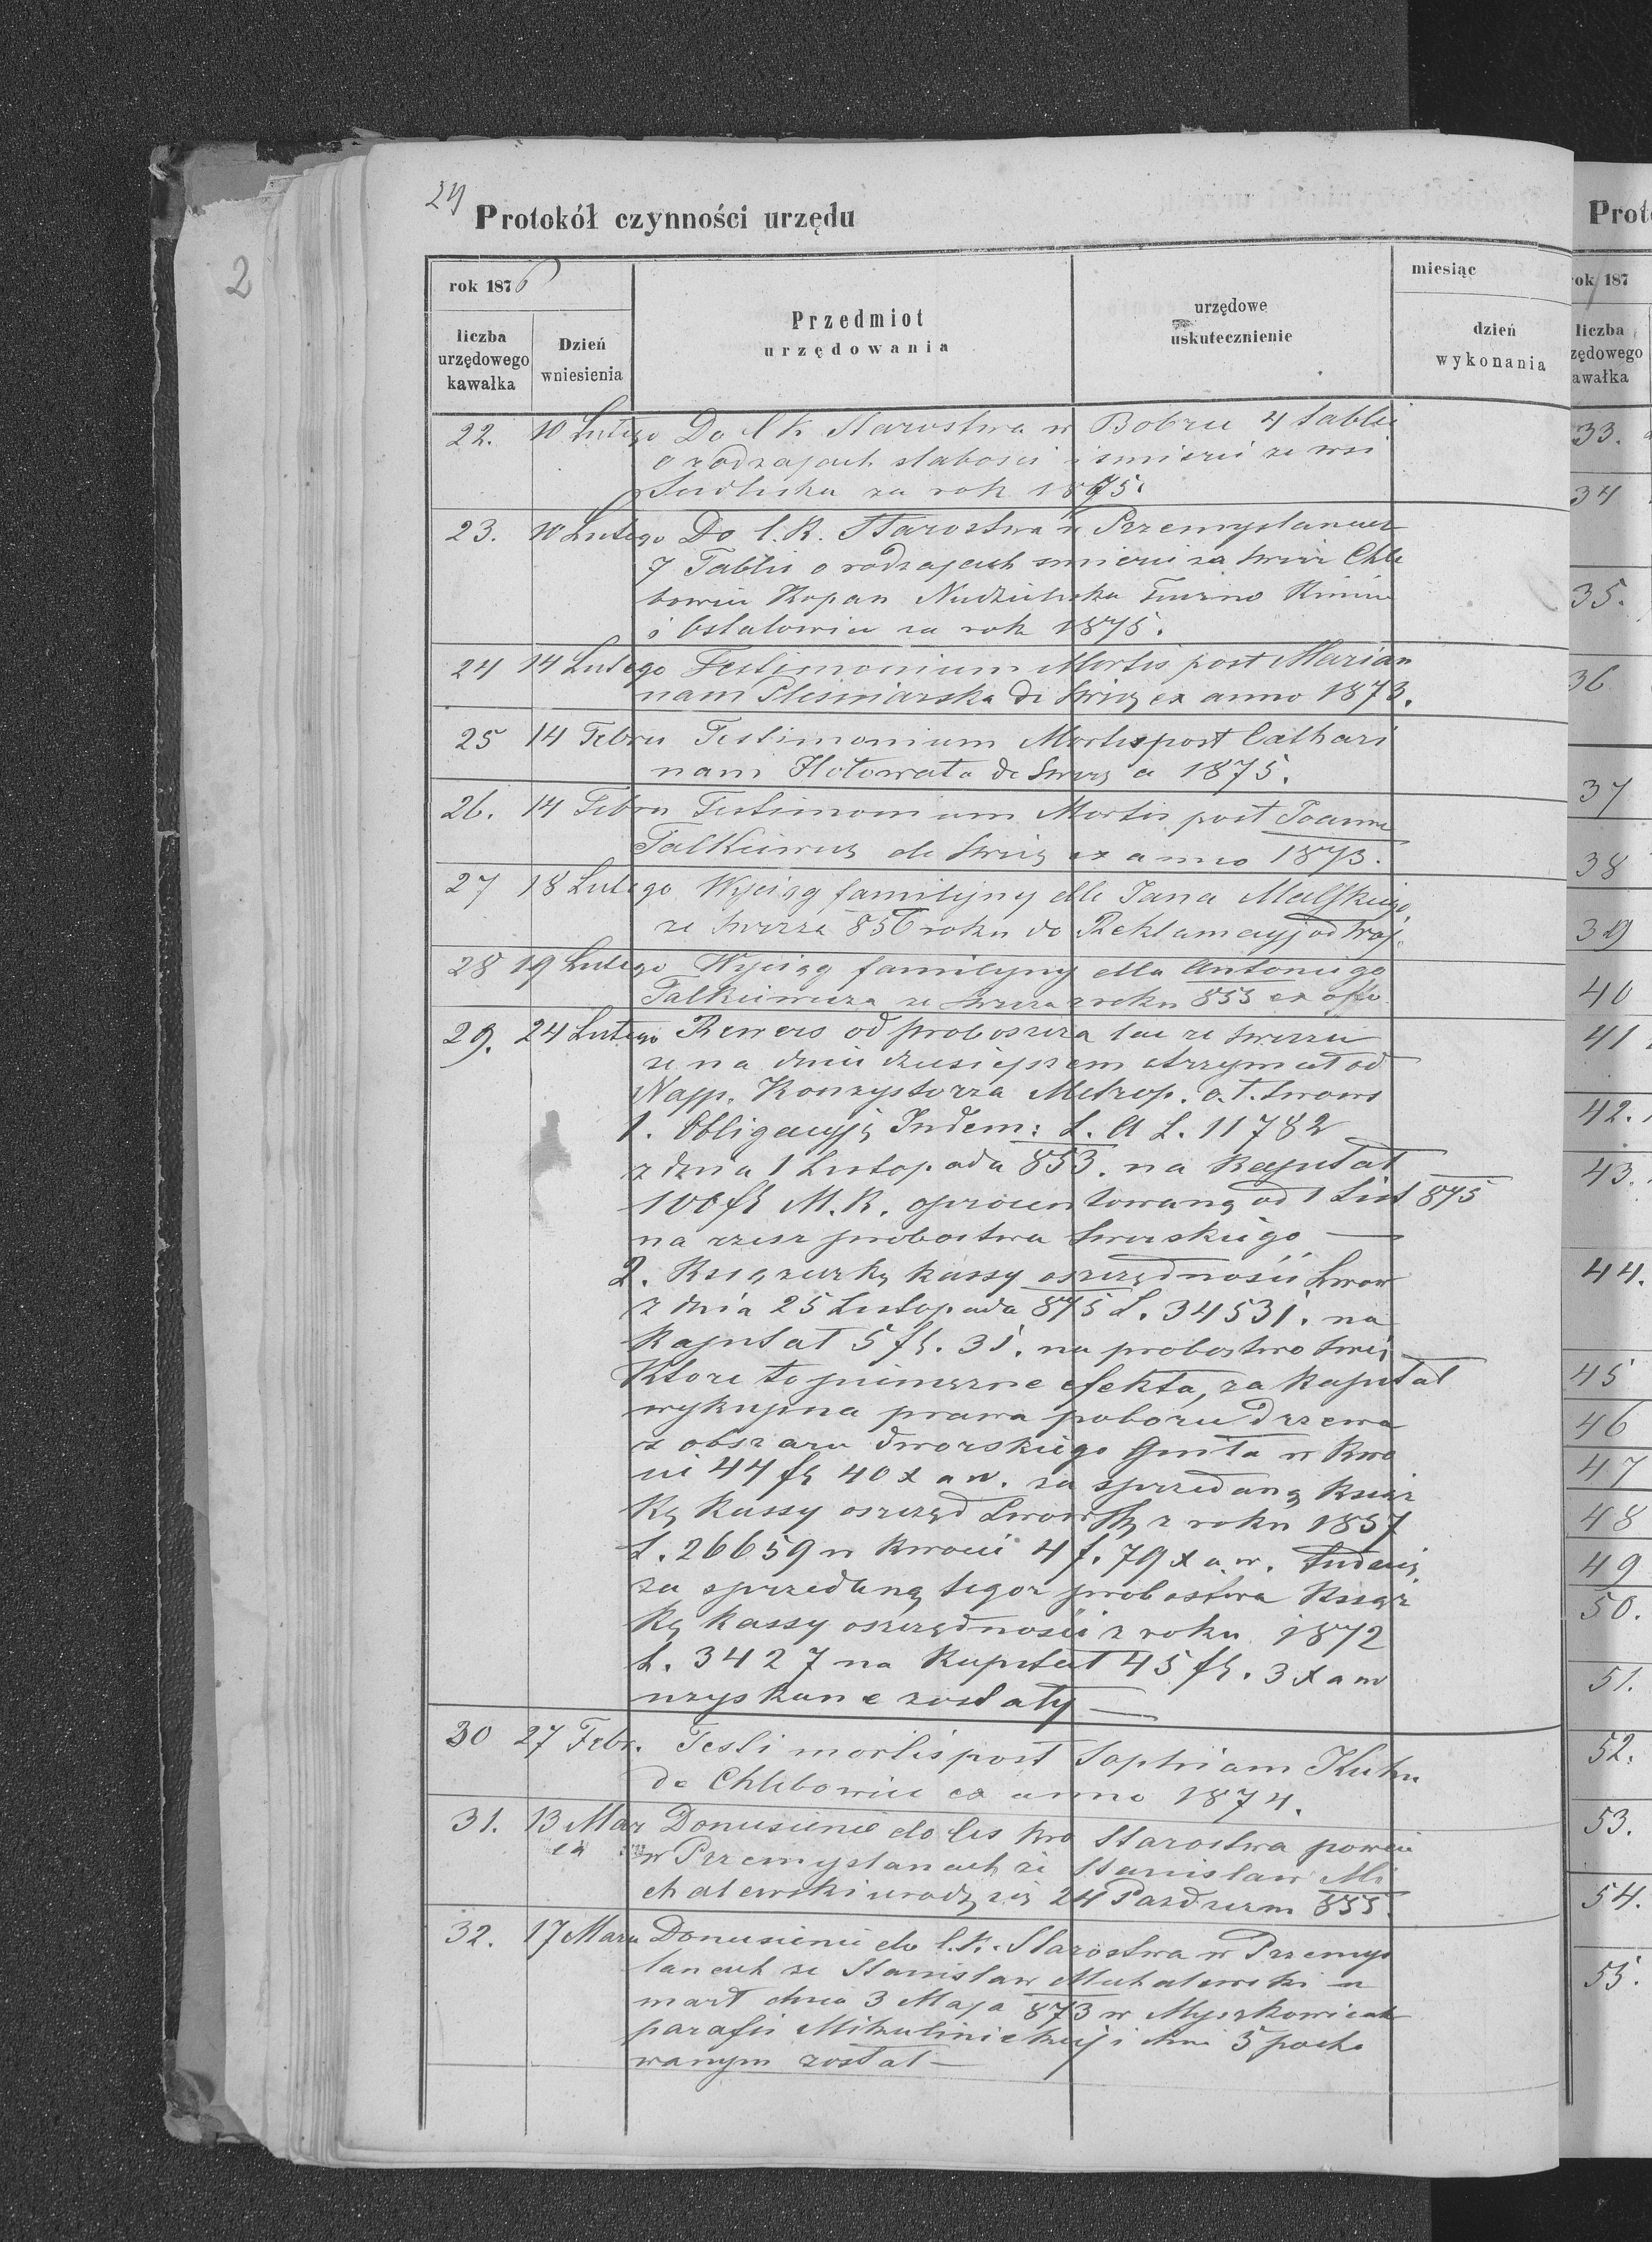 24
Protokół czynności urzędu
2
rok 1876
miesiąc
liczba urzędowego kawałka
Dzień wniesienia
Przedmiot urzędowania
urzędowe uskutecznienie
dzień wykonania
22. 10 Lutego Do C K Starostwa w Bobrce 4 tablic
o rodzajach słabosci i smierci ze wsi
za rok 1875.
23. 10 Lutego Do C. K. Starostwa w Przemyslanach
7 Tablic o rodzajach smierci za Swirz Chle
bowice Kopan
i Ostalowice za rok 1875.
24 14 Lutego Testimonium Mortis post Marian
nam de Swirz ex anno 1873.
25 14 Febru Testimonium Mortis post Cathari
nam de Swirz a 1875.
26. 14 Febru Testimonium Mortis post Joanne
Falkiewicz de Swirz ex anno 1873.
27 18 Lutego Wyciąg familijny dla Jana
ze Swirza 856 roku do Reklamacyj od woj.
28 19 Lutego Wyciąg familyjny dla Antoniego
Falkiewicza ze Swirza z roku 853 ex offo
29. 24 Lutego Rewers od proboszcza lac ze Swirza
ze na dniu dzisiejszem otrzymał od
Najp. Konzystorza Metrop. o. ł. Lwows
1. Obligacyję Indem: L. A L. 11782
z dnia 1 Listopada 853. na kapitał
100 fl M. K. oprocentowaną od 1 List 875
na rzecz probostwa Swirskiego
2. Książeczkę kassy oszczędności Lwow
z dnia 25 Listopada 875 L. 34531. na
Kapitał 5 fl. 31. na probostwo Swir
Ktore to pieniężne efekta, za kapitał
wykupna prawa poboru drzewa
z obszaru dworskiego w kwo
cie 44 fl 40 x a w. za sprzedaną książ
kę kassy oszczęd Lwowską z roku 1857
L. 26659 w kwocie 4 f. 79 x a. w.
za sprzedaną tegoz probostwa książ
kę kassy oszczędności z roku 1872
L. 3427 na Kapitał 45 fl. 3 x a w
uzyskane zostały
30 27 Febr. Testi mortis post Sophiam
de Chlebowice ex anno 1874.
31. 13 Mar Donusienie do Ces Kro Starostwa powia
w Przemyslanach ze Stanisław Mi
chalewski urodz się 24 Pazdziern 855.
32. 17 Marca Donusienie do C. K. Starostwa w Przemys
lanach ze Stanisław Michalewski u
marł dnia 3 Maja 873 w Myszkowicach
parafii Mikulinieckiej i dnia 5 pocho
wanym został
Prot
rok 187
liczba
zędowego
awałka
33.
34
35.
36
37
38
39
40
41
42.
43.
44.
45
46
47
48
49
50.
51.
52.
53.
54.
55.